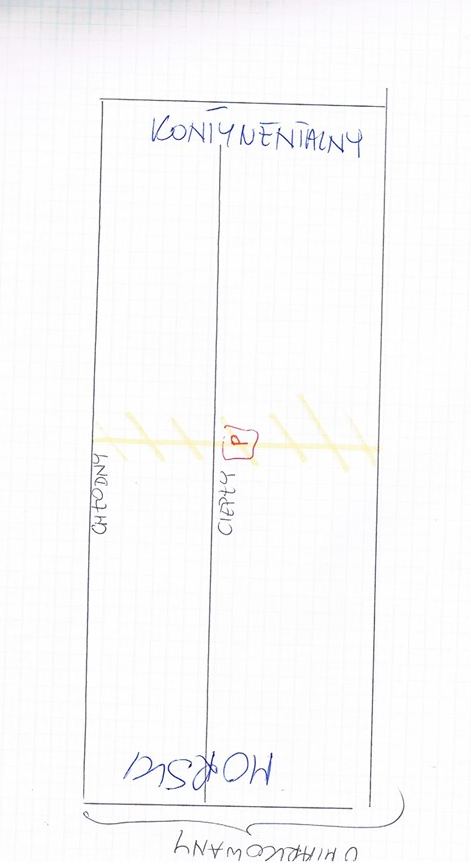 KONTYNENTALNY
CHŁODNY
CIEPŁY
P
MORSKI
UMIARKOWANY